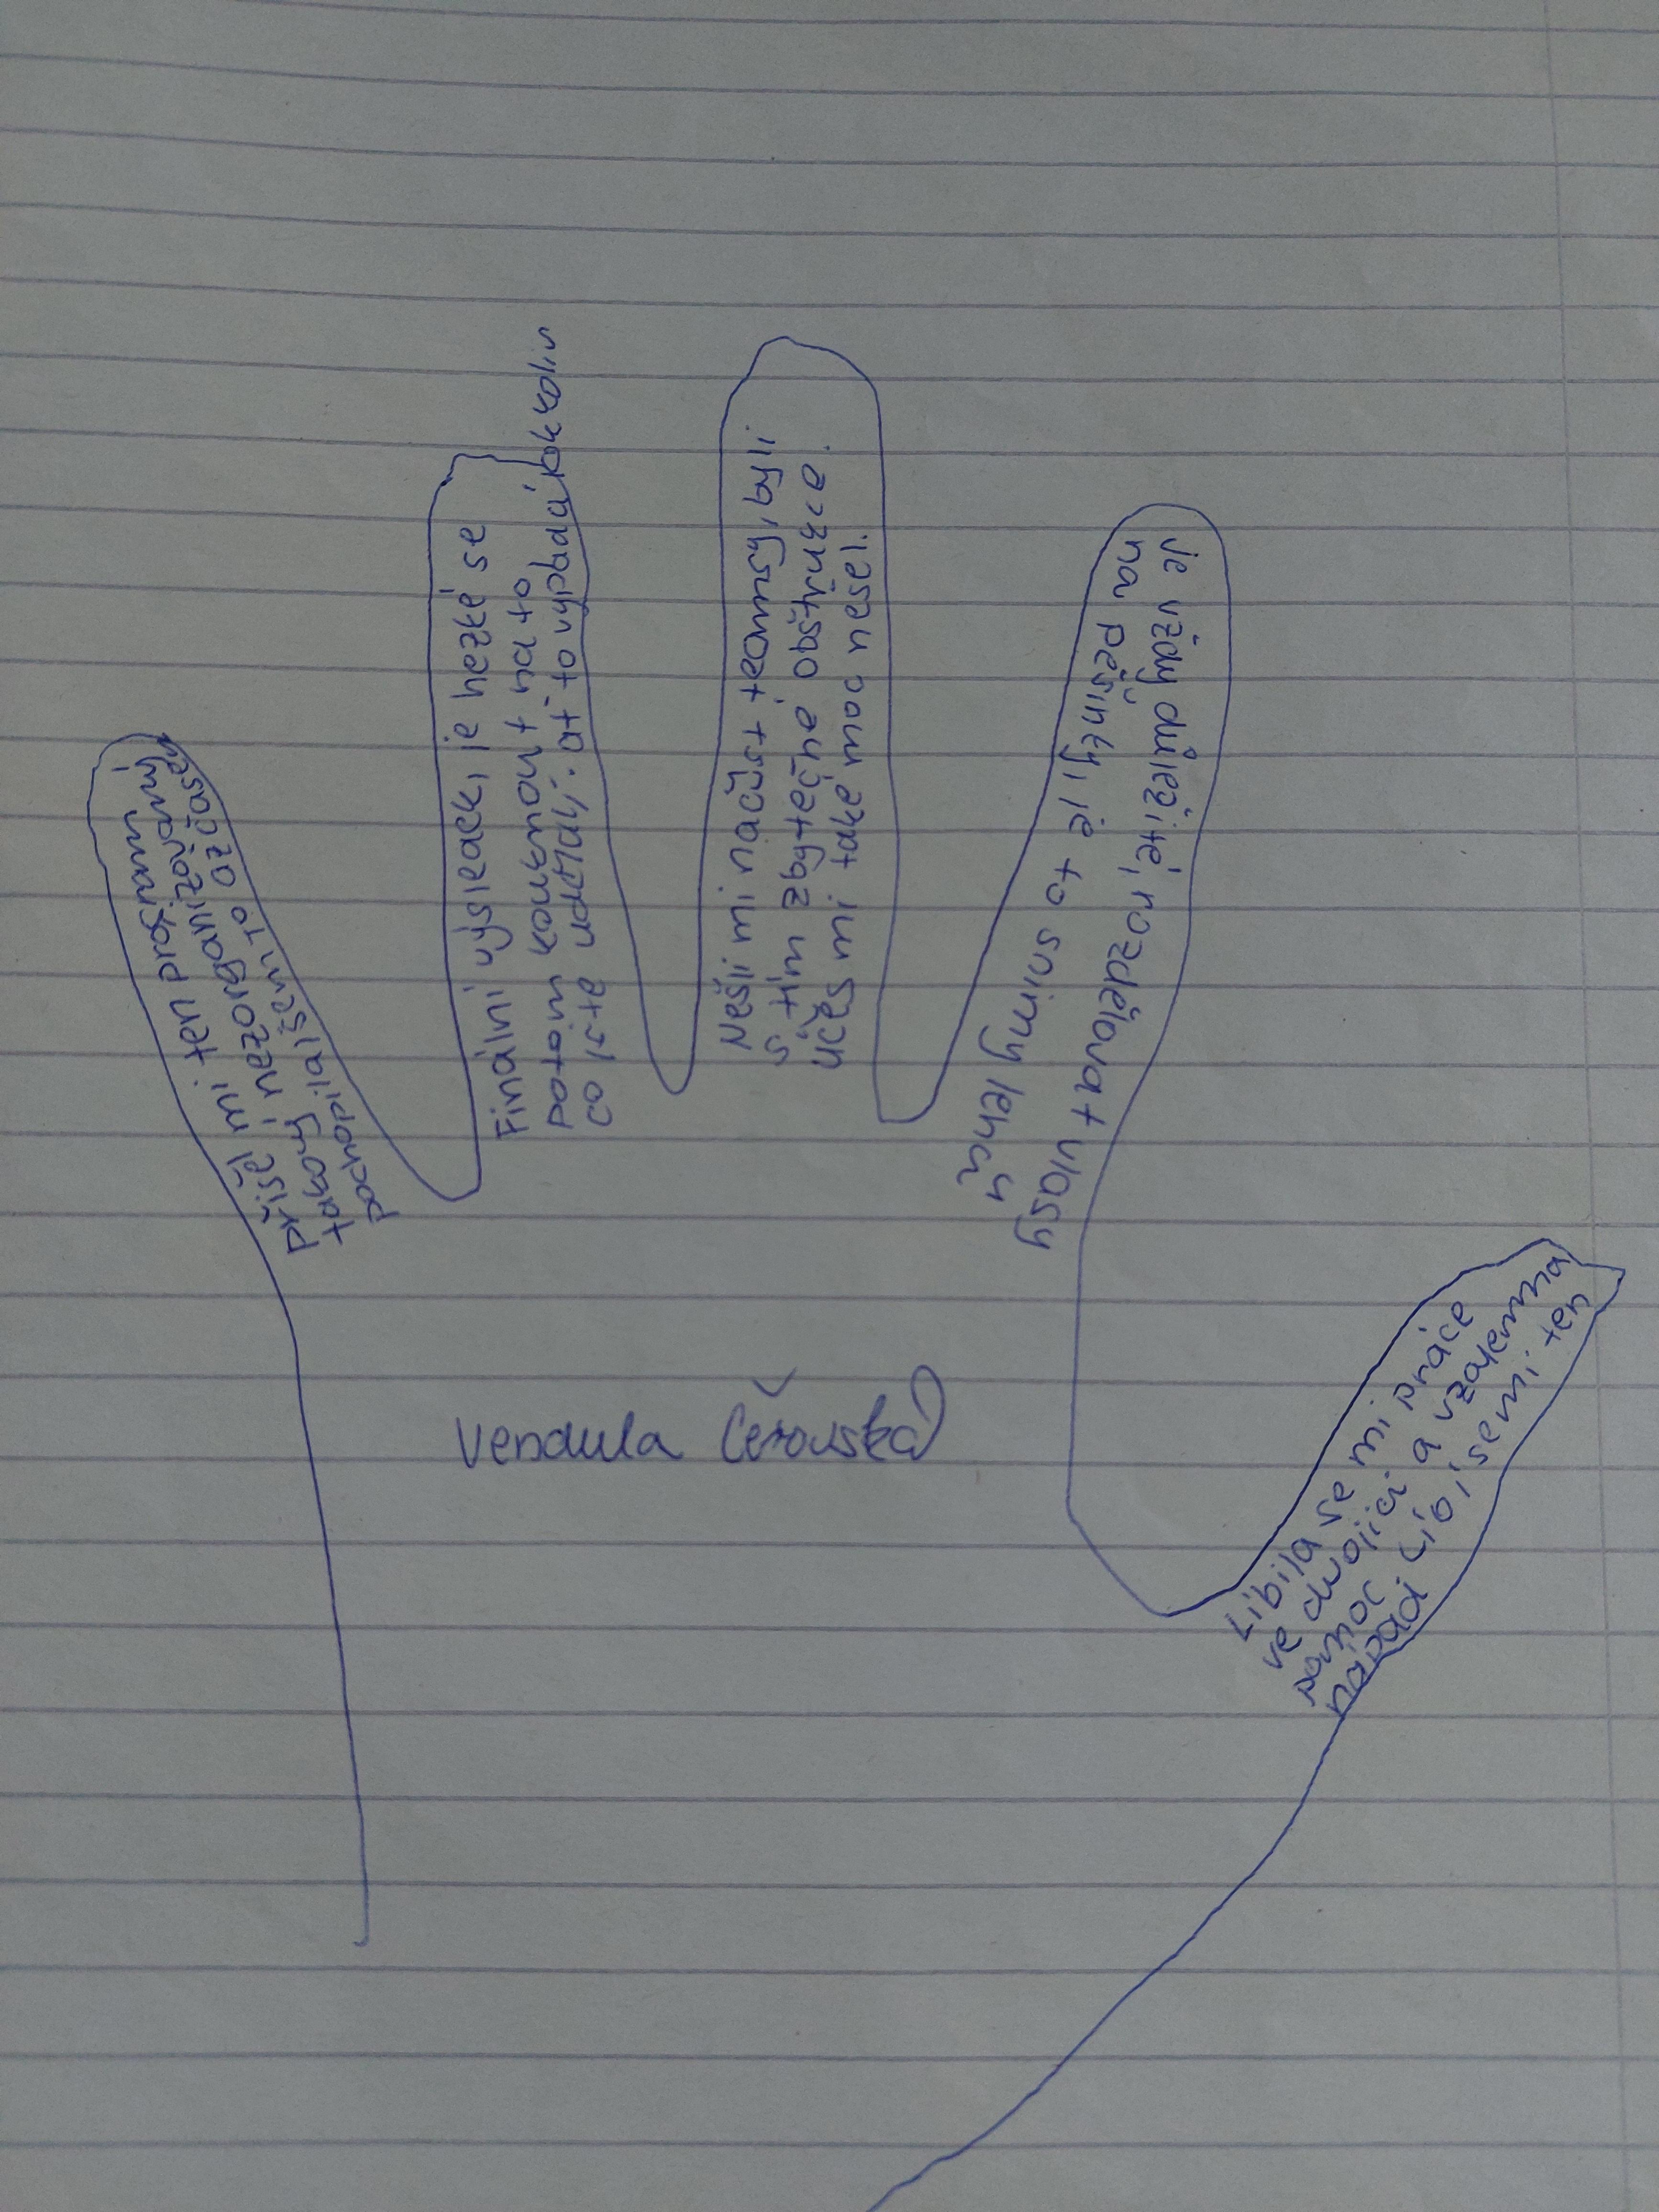 přišel mi ten program
takový nezorganizovaný
pochopila jsem to až časem
Finální výsledek, je hezké se
potom kouknout na to
co jste udělali. ať to vypadá jakkoliv
Nešli mi načíst teamsy, byli
s tím zbytečné obštrukce.
účes mi také moc nešel.
Je vždy důležité, rozdělovat vlasy
na pěšinky, je to s nimy lehčí
Líbila se mi práce
ve dvojici a vzájemná
pomoc Líbí se mi ten
nápad
Vendula Čežovská